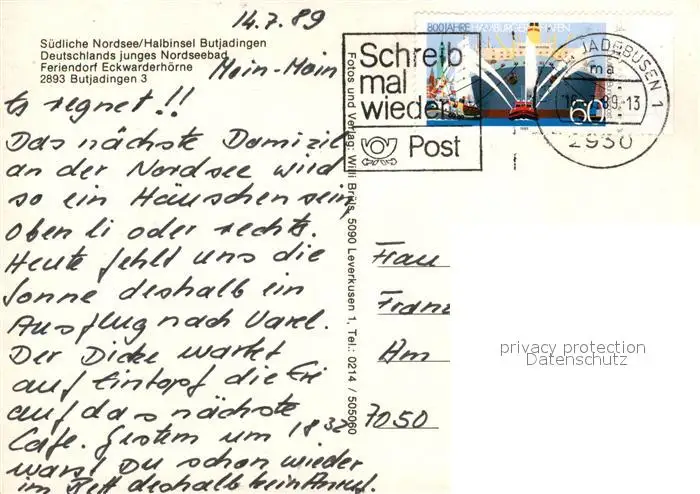 14.7.89
Südliche Nordsee/Halbinsel Butjadingen
Deutschlands junges Nordseebad
Feriendorf Eckwarderhörne
2893 Butjadingen 3
Moin-Moin
Es regnet!!
Das nächste Domizil
an der Nordsee wird
so ein Häuschen sein
oben li oder rechts.
Heute fehlt uns die
Sonne deshalb ein
Ausflug nach Varel.
Der Dicke wartet
auf Eintopf die Eri
auf das nächste
Cafe. Gestern um 18 32
warst Du schon wieder
im Bett deshalb kein Anruf.
Fotos und Verlag: Willi Brills, 5090 Leverkusen 1, Tel.: 0214 / 505060
800 JAHRE HAMBURGER HAFEN
60
Schreib
mal
wieder
Post
JADEBUSEN 1
ma
89-13
2930
Frau
Franz
Am
7050
privacy protection
Datenschutz